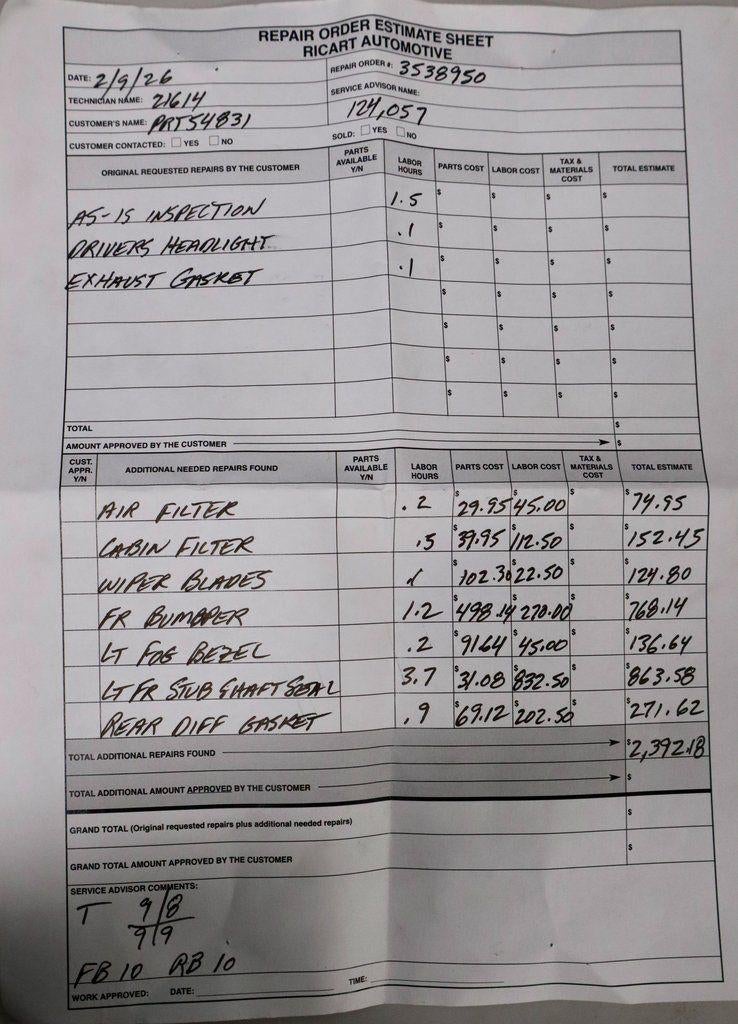 REPAIR ORDER ESTIMATE SHEET
RICART AUTOMOTIVE
DATE: 2/9/26 REPAIR ORDER #: 3538950
TECHNICIAN NAME: 21614 SERVICE ADVISOR NAME:
CUSTOMER'S NAME: PRT54831 124,057
CUSTOMER CONTACTED: YES NO SOLD: YES NO
ORIGINAL REQUESTED REPAIRS BY THE CUSTOMER PARTS AVAILABLE Y/N LABOR HOURS PARTS COST LABOR COST TAX & MATERIALS COST TOTAL ESTIMATE
AS-IS INSPECTION 1.5 $ $ $ $
DRIVERS HEADLIGHT .1 $ $ $ $
EXHAUST GASKET .1 $ $ $ $
$ $ $ $
$ $ $ $
$ $ $ $
$ $ $ $
TOTAL $
AMOUNT APPROVED BY THE CUSTOMER $
CUST. APPR. Y/N ADDITIONAL NEEDED REPAIRS FOUND PARTS AVAILABLE Y/N LABOR HOURS PARTS COST LABOR COST TAX & MATERIALS COST TOTAL ESTIMATE
AIR FILTER .2 $29.95 $45.00 $ $74.95
CABIN FILTER .5 $39.95 $112.50 $ $152.45
WIPER BLADES $102.30 $22.50 $ $124.80
FR BUMBPER 1.2 $498.14 $270.00 $ $768.14
LT FOG BEZEL .2 $91.64 $45.00 $ $136.64
LT FR STUB SHAFT SEAL 3.7 $31.08 $832.50 $ $863.58
REAR DIFF GASKET .9 $69.12 $202.50 $ $271.62
TOTAL ADDITIONAL REPAIRS FOUND $2,392.18
TOTAL ADDITIONAL AMOUNT APPROVED BY THE CUSTOMER $
GRAND TOTAL (Original requested repairs plus additional needed repairs) $
GRAND TOTAL AMOUNT APPROVED BY THE CUSTOMER $
SERVICE ADVISOR COMMENTS:
T 9/8
9/9
FB 10 RB 10
WORK APPROVED: DATE: TIME: